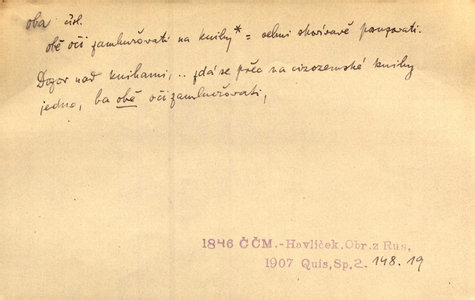 oba čísl.
obě oči zamhuřovati na knihy * = velmi shovívavě posuzovati.
Dozor nad knihami, .. zdá se přec na cizozemské knihy
jedno, ba obě oči zamhuřovati,
1846 ČČM.-Havlíček.Obr.z Rus,
1907 Quis,Sp.2. 148.19